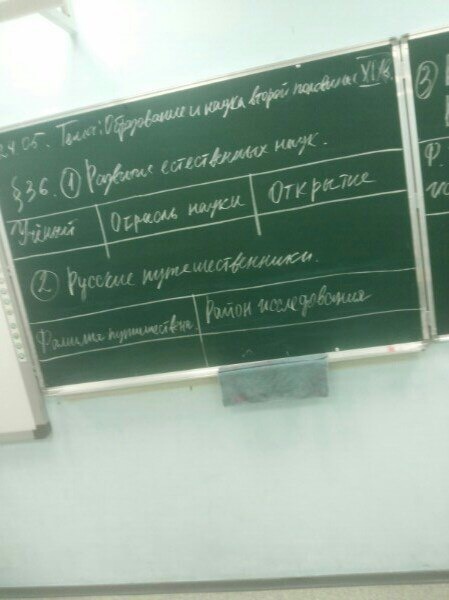 24.05. Тема: Образование и наука второй половины XIXв.
§36. ① Развитие естественных наук.
Учёный Отрасль науки Открытие
② Русские путешественники.
Фамилия путешественн. Район исследования
③
Ф.